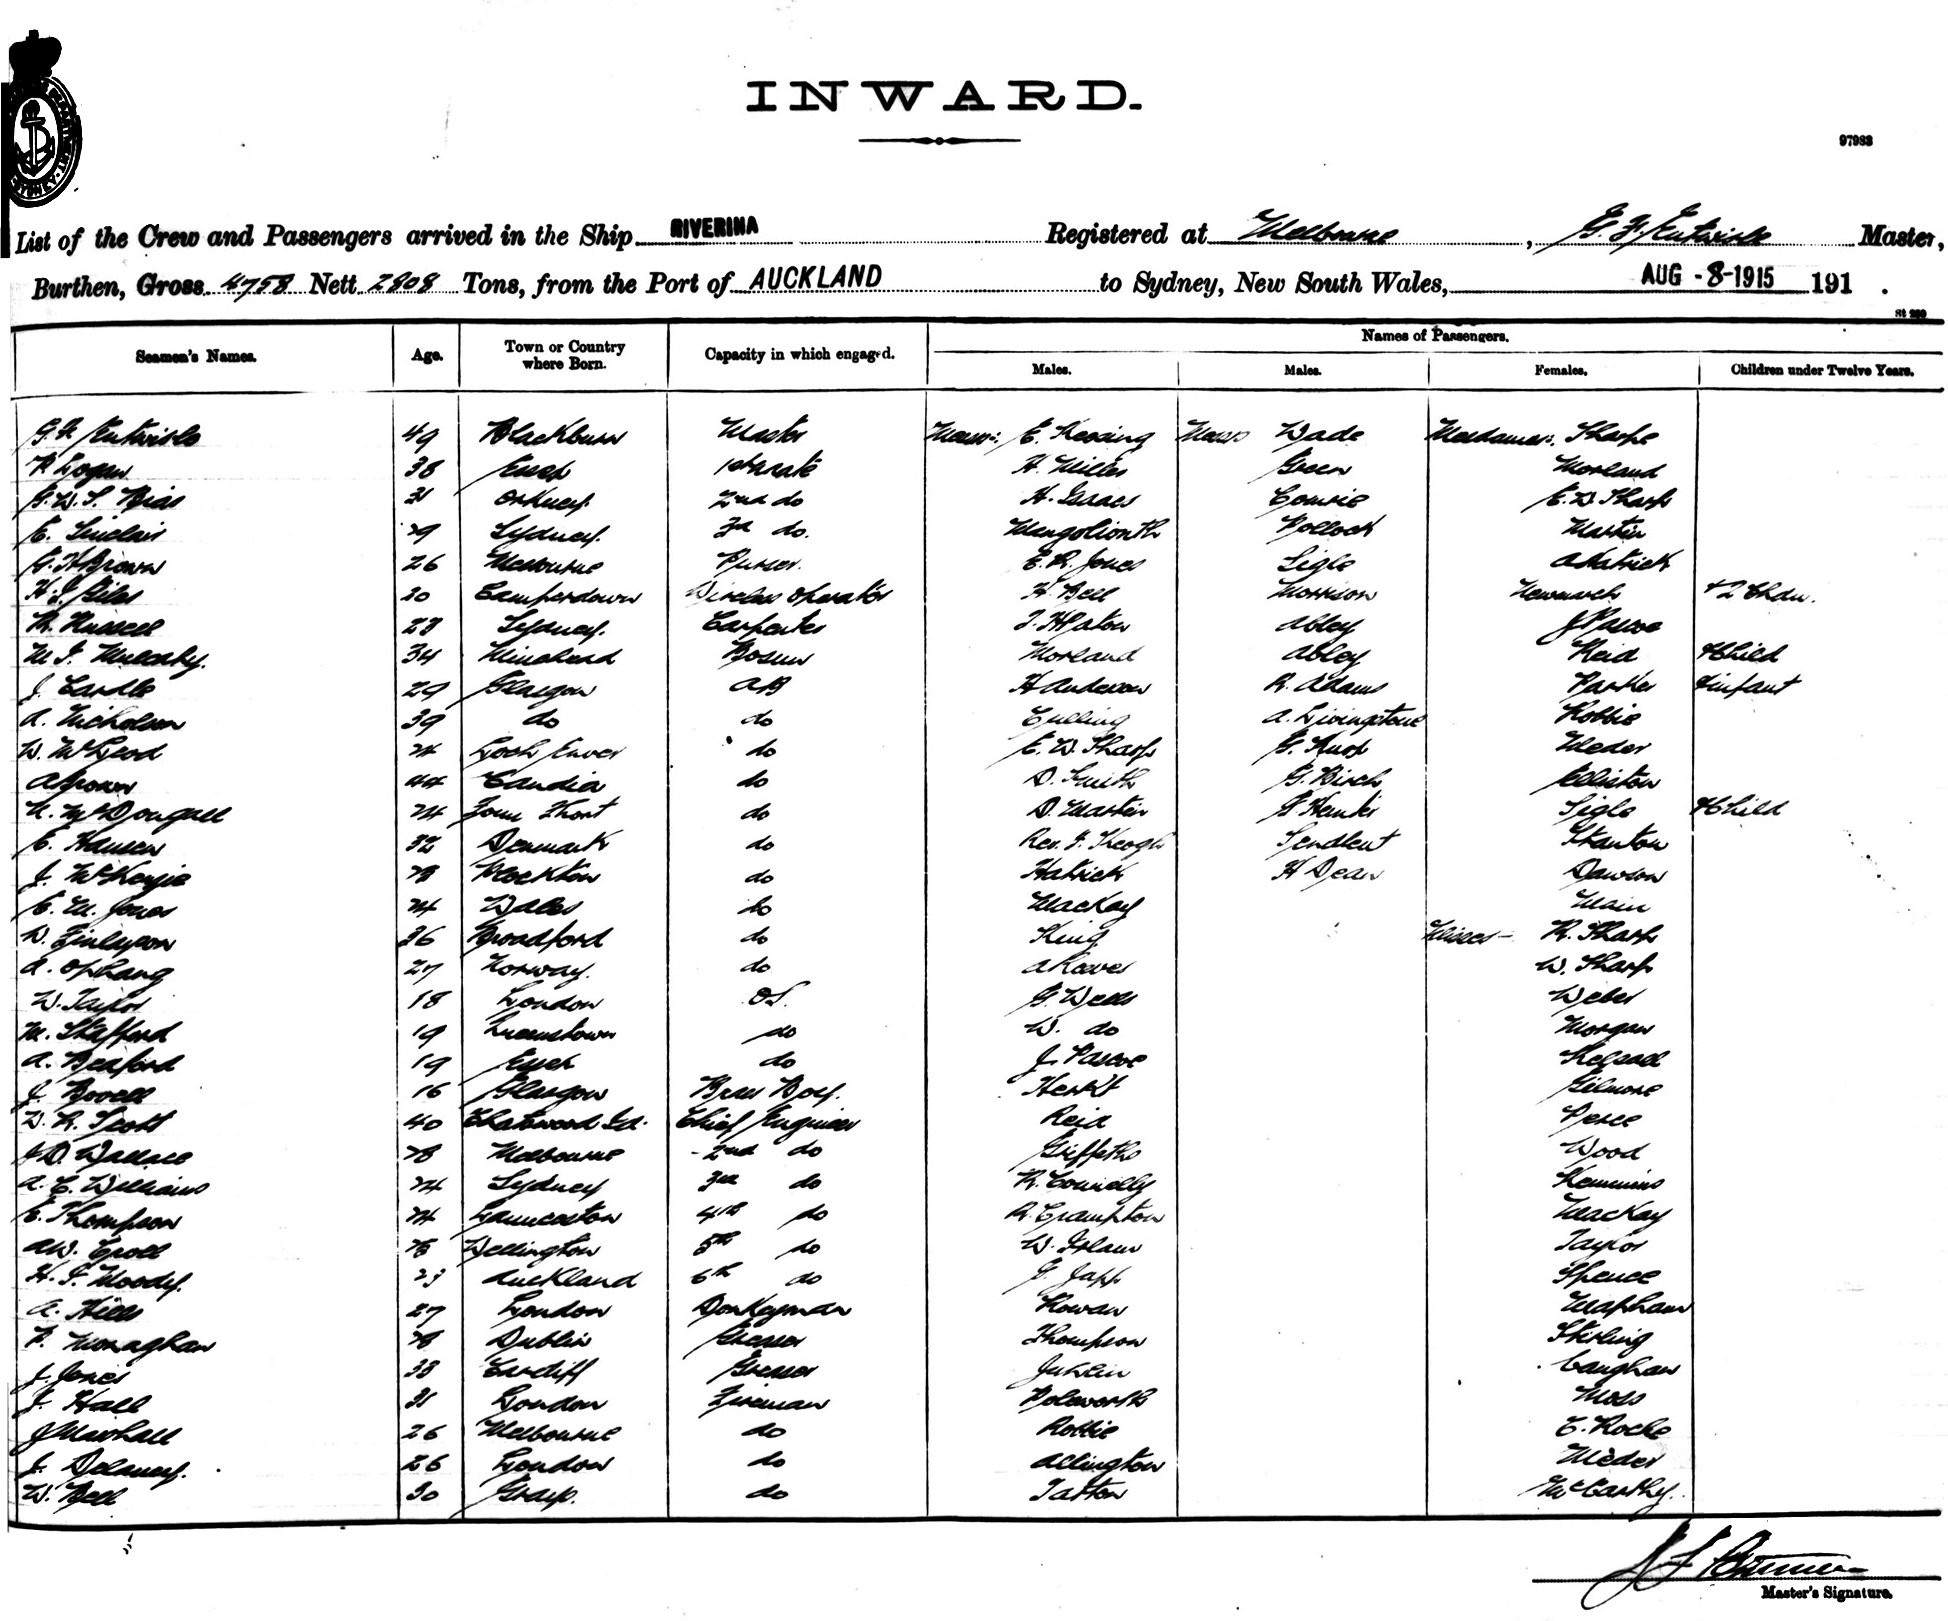 INWARD.
97983
List of the Crew and Passengers arrived in the Ship RIVERINA Registered at Melbourne, G. F. Entwisle Master,
Burthen, Gross 4758 Nett 2808 Tons, from the Port of AUCKLAND to Sydney, New South Wales, AUG -8-1915 191 .
Seamen's Names. Age. Town or Country where Born. Capacity in which engaged. Names of Passengers.
Males. Males. Females. Children under Twelve Years.
G F Entwisle 49 Blackburn Master Messrs: E. Keesing Messrs Wade Mesdames: Sharpe
P. Logan 38 Essex 1st mate H. Miller Green Morland
G. W. S. Bias 31 Orkney 2nd do H. Isaacs Comrie E. W Sharp
E. Sinclair 29 Sydney. 3rd do. Pollock Martin
G. H Brown 26 Melbourne Purser. E. R. Jones Sigle A Hatrick
H. J. Giles 30 Camperdown Wireless Operator H. Bell Morrison + 2 Chdn.
R. Russell 23 Sydney. Carpenter J. H Paton Abley J Pascoe
M J. Mulcahy. 34 Minehead Bosun Morland Abley Reid + Child
J. Cardle 29 Glasgow AB H Anderson R. Adams Parker + infant
A. Nicholson 39 do do Culling A. Livingstone Robbie
W. McLeod 24 Loch Inver do E. W. Sharp G. Knox Meder
A Brown 44 Candia do D. Smith G. Birch Elliston
N. McDougall 24 do D. Martin Sigle + Child
E. Hansen 32 Denmark do Rev. J. Keogh Stanton
J. McKenzie 28 Brockton do Hatrick H Dean Dawson
E. M. Jones 24 Wales do MacKay Main
W. Finlayson 36 Broadford do King Misses - R. Sharp
A. Ophang 27 Norway. do W. Sharp
W. Taylor 18 London OS. G. Wells Weber
M. Stafford 19 Queenstown do W. do Morgan
A. Bedford 19 Essex do J. Pascoe Kelsall
J. Bovell 16 Glasgow Brass Boy. Gilmore
W. R. Scott 40 Chief Engineer Reid Perce
J D. Wallace 28 Melbourne 2nd do Griffiths Wood
A. E. Williams 24 Sydney 3rd do R. Connelly Kemmins
E. Thompson 24 Launceston 4th do R. Crampton MacKay
A W. Croll 28 Wellington 5th do W. Islam Taylor
H. F. Moody. 23 Auckland 6th do G. Japp Spence
A. Hills 27 London Donkeyman Rowan Mapham
P. Monaghan 28 Dublin Greaser Thompson Stirling
J. Jones 38 Cardiff Greaser Vaughan
J. Hall 31 London Fireman Polworth Moss
J Marshall 26 Melbourne do Robbie E. Roche
J. Delaney. 26 London do Allington Meder
W. Bell 30 Grays. do Tatton McCarthy.
Master's Signature.